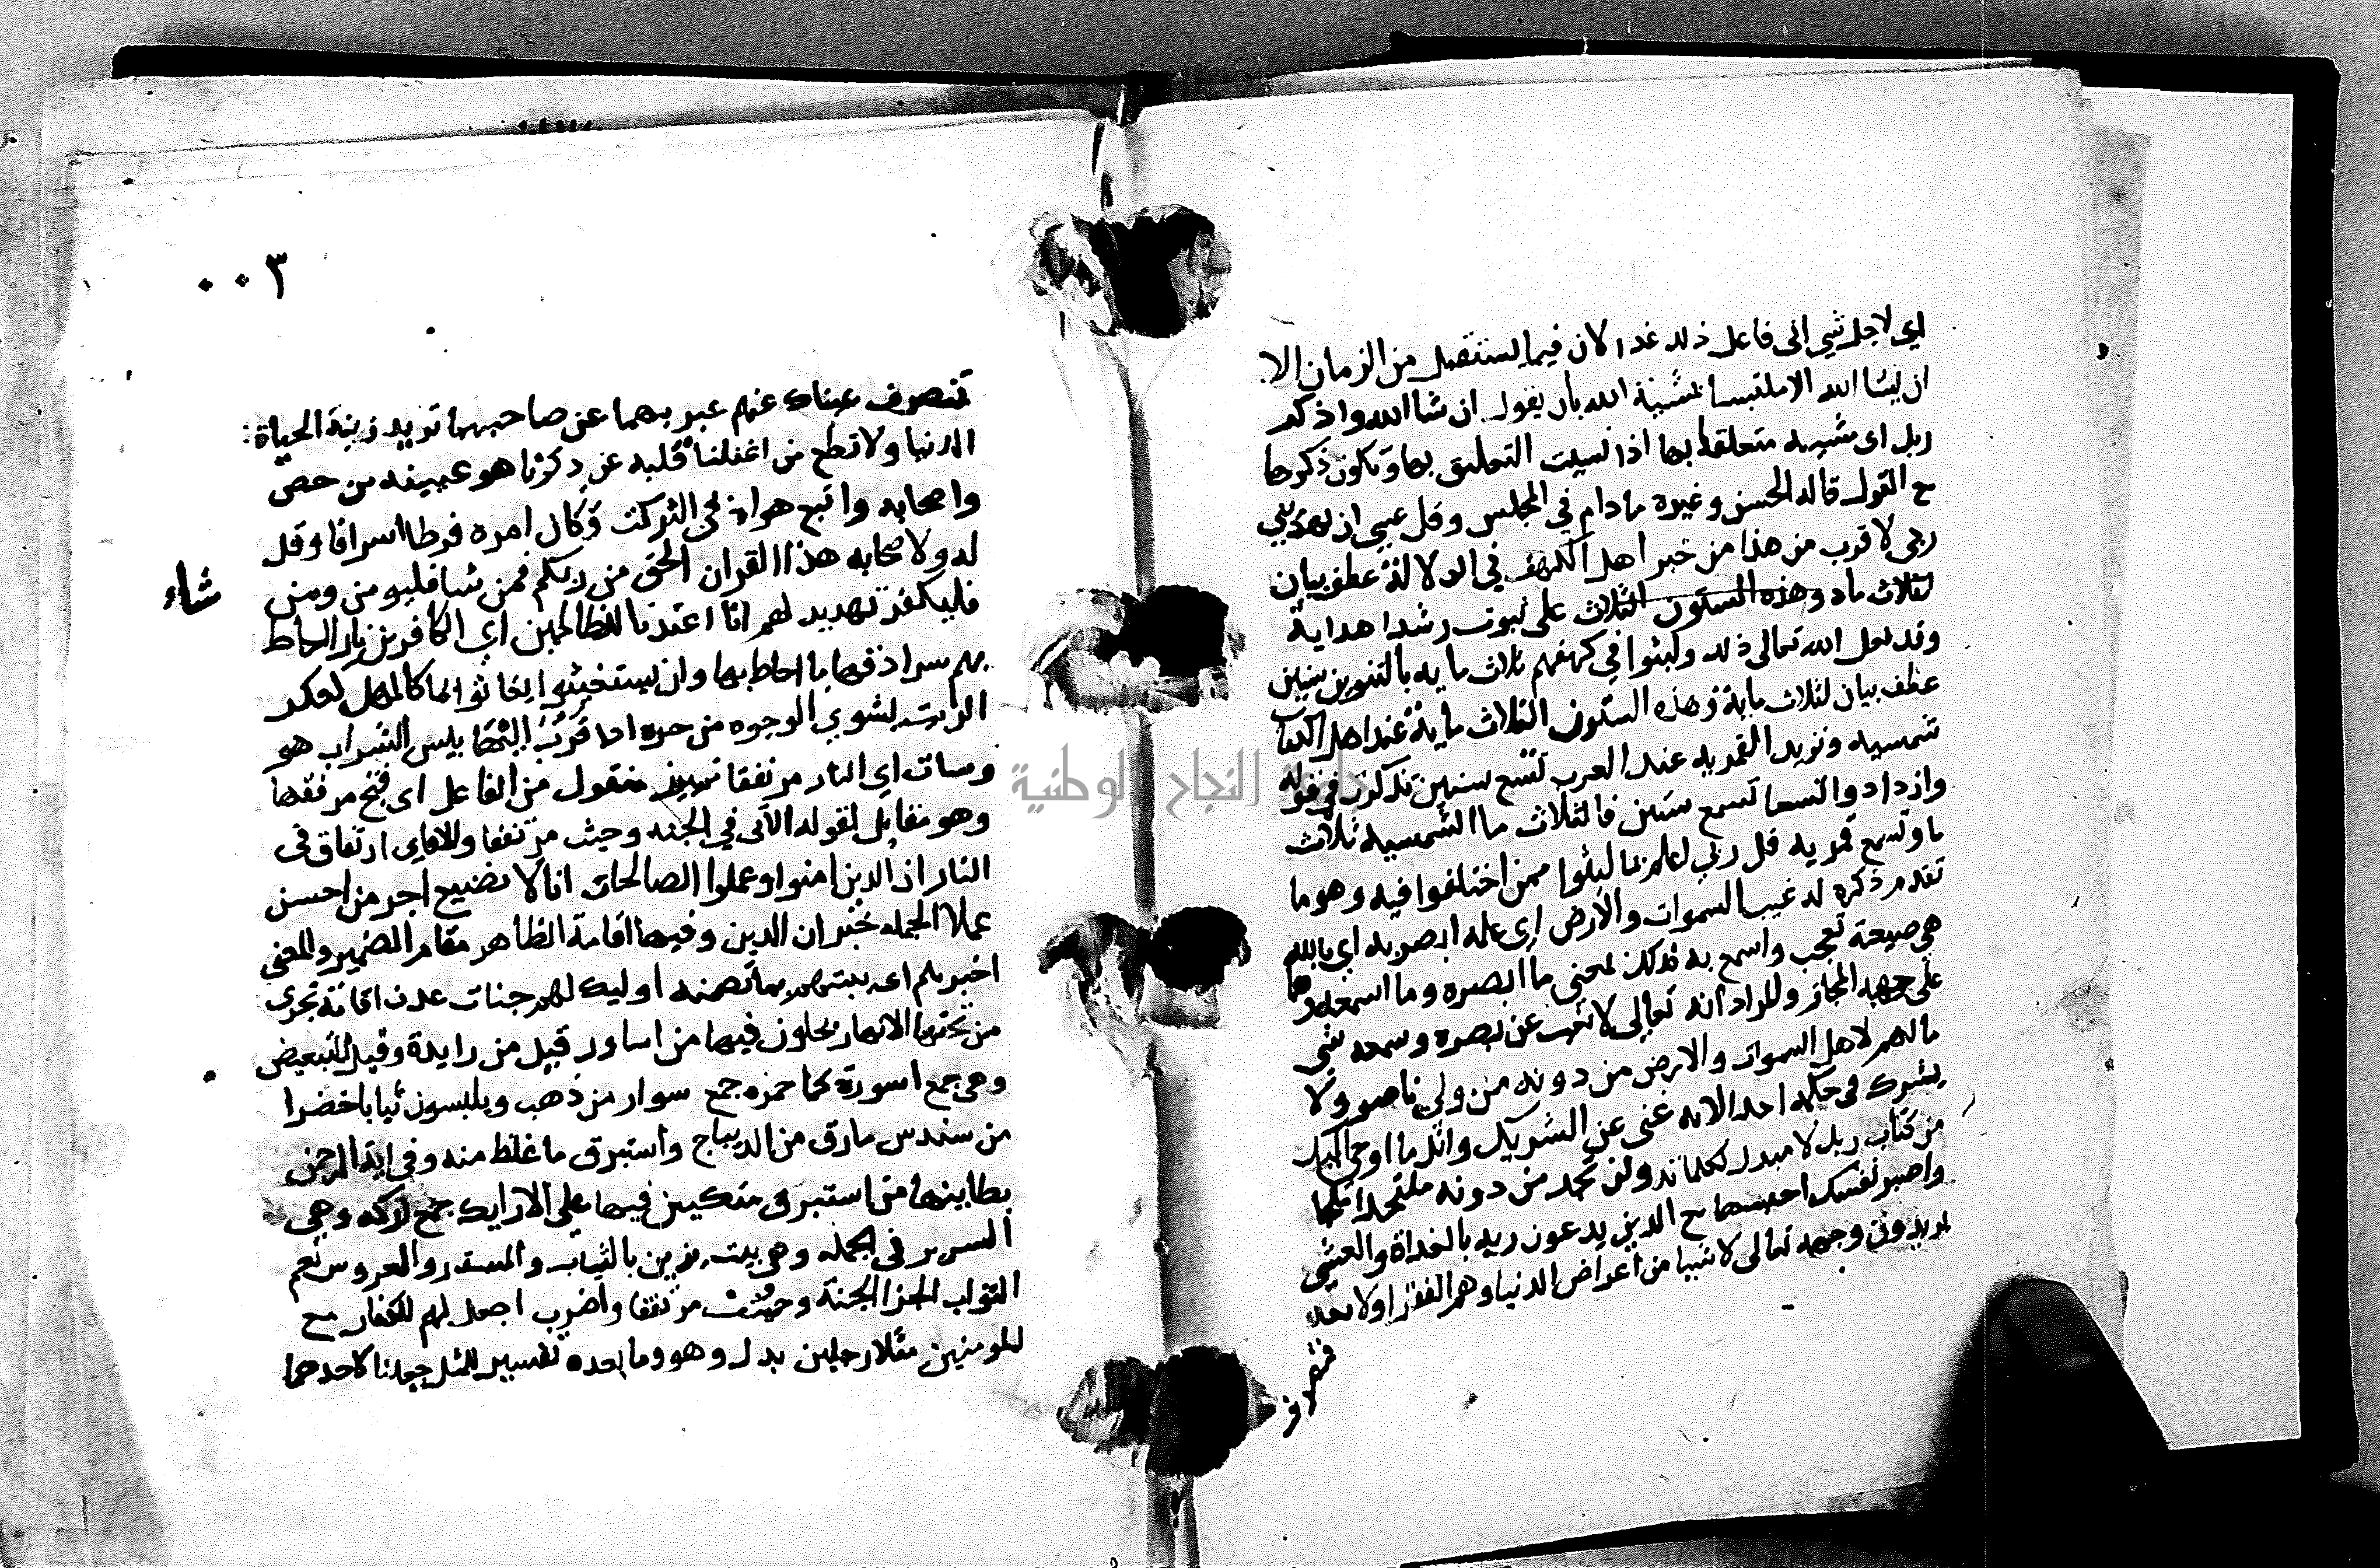 اي لاجل شي اني فاعل ذلك غدا الان فيما يستقبل من الزمان الا
ان يشا الله الا ملتبسا بمشية الله بان يقول ان شا الله واذكر
ربك اي مشيه متعلقا بها اذا نسيت التعليق بها ويكون ذكرها
ح القول قاله الحسن وغيره مادام في المجلس وقل عسي ان يهديني
ربي لا قرب من هذا من خبر اهل الكهف في الدلالة عطف بيان
لثلاث ماه وهذه السنون الثلاث على نبوت رشدا هداية
وقد فعل الله تعالى ذلك ولبثوا في كهفهم ثلاث مايه بالتنوين سنين
عطف بيان لثلاث ماية وهذه السنون الثلاث ماية عند اهل الكتاب
شمسيه وتزيد القمريه عند العرب تسع سنين تذكرت في قوله
وازدادوا تسعا تسع سنين فالثلاث ما الشمسيه ثلاث
ما وتسع قمريه قل ربي اعلم بما لبثوا ممن اختلفوا فيه وهو ما
تقدم ذكره له غيب السموات والارض اي علمه ابصر به اي بالله
هي صيعة تعجب واسمع به كذلك بمعني ما ابصره وما اسمعه وهما
على جهة المجاز والمراد انه تعالى لا تغيب عن بصره وسمعه شي
مالهم لاهل السموات والارض من دونه من ولي ناصر ولا
يشرك في حكمه احدا لانه غني عن الشريك واتل ما اوحي اليك
من كتاب ربك لا مبدل لكلماته ولن تجد من دونه ملتحدا ملجا
واصبر نفسك احبسها مع الذين يدعون ربهم بالغداة والعشي
يريدون وجهه تعالى لا شيا من اعراض الدنيا وهم الفقرا ولا تعد
تنصرف
٠٠٣
تنصرف عيناك عنهم عبر بهما عن صاحبهما تريد زينة الحياة
الدنيا ولا تطع من اغفلنا قلبه عن ذكرنا هو عيينه بن حصن
واصحابه واتبع هواه في الشرك وكان امره فرطا اسرافا وقل
له ولاصحابه هذا القران الحق من ربكم فمن شا فليومن ومن
شاء
فليكفر تهديد لهم انا اعتدنا للظالمين اي الكافرين نارا احاط
بهم سرادقها ما احاط بها وان يستغيثوا يغاثوا بما كالمهل كعكر
الزيت يشوي الوجوه من حره اذا قرب اليها بيس الشراب هو
وسات اي النار مرتفقا تمييز منقول من الفاعل اي قبح مرتفقها
وهو مقابل لقوله الاتي في الجنه وحيث مرتفقا والافاي ارتفاق في
النار ان الذين امنوا وعملوا الصالحات انا لا نضيع اجر من احسن
عملا الجمله خبر ان الذين وفيها اقامة الظاهر مقام المضمير والمعني
اجرهم اي يثيبهم بما تضمنه اوليك لهم جنات عدن اقامة تجري
من تحتها الانهار يحلون فيها من اساور قيل من زايدة وقيل للتبعيض
وهي جمع اسورة كما حمزه جمع سوار من ذهب ويلبسون ثيابا خضرا
من سندس مارق من الديباج واستبرق ما غلظ منه وفي اية الرحمن
بطاينها من استبرق متكيين فيها على الارايك جمع اركه وهي
السرير في الحجله وهي بيت يزين بالثياب والستر والعروس نعم
الثواب الجزا الجنة وحسنت مرتفقا واضرب اجعل لهم للكفار مع
المومنين مثلا رجلين بدل وهو وما بعده تفسير للمثل جعلنا لاحدهما
جامعة النجاح الوطنية